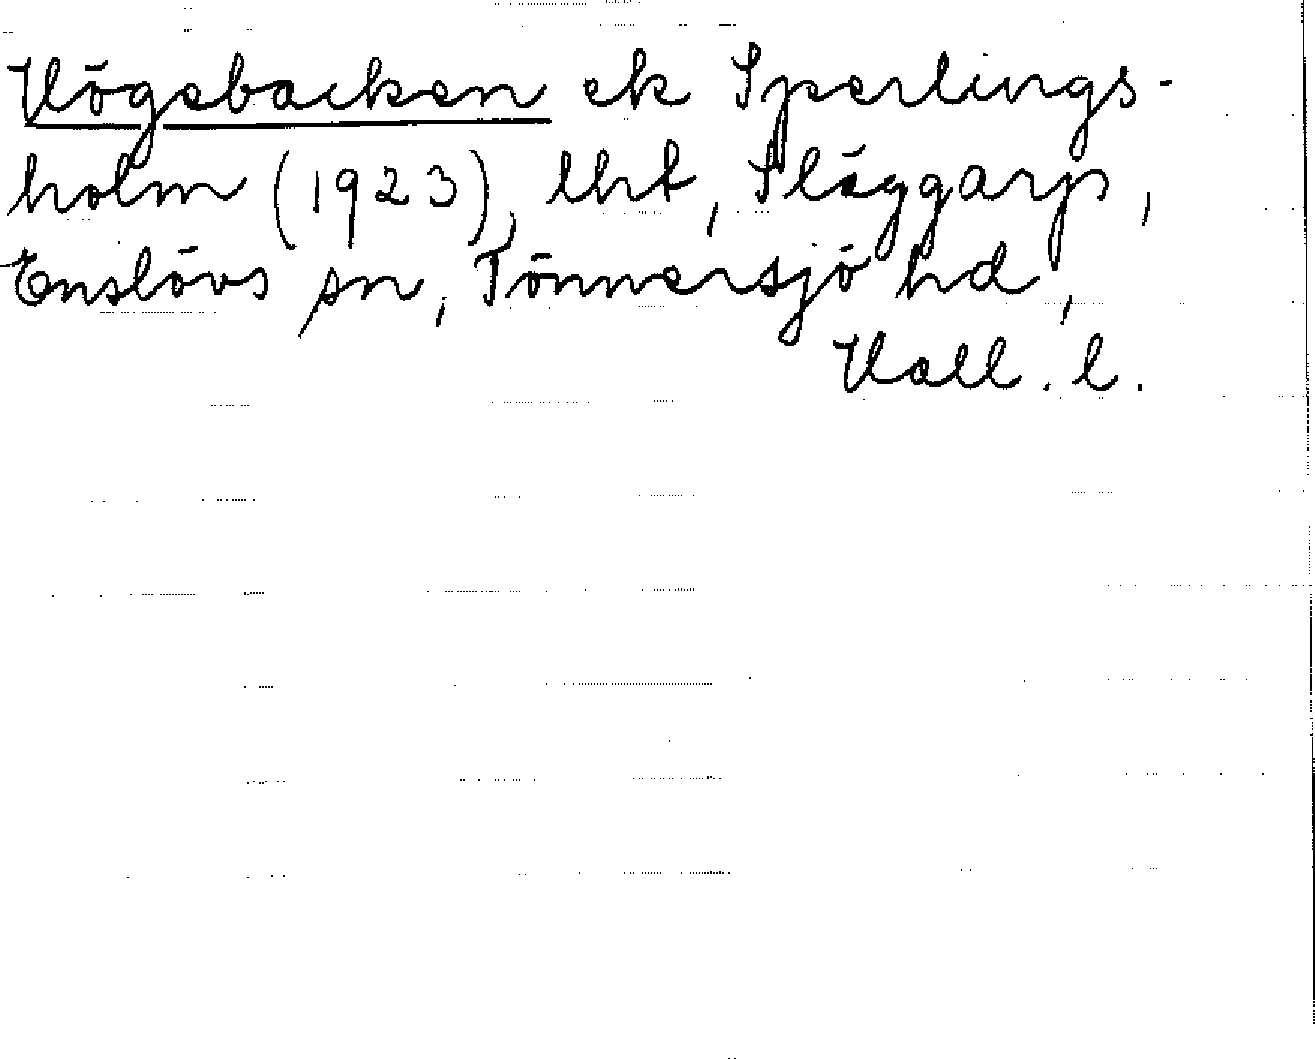 Högebacken ek Sperlings-
holm (1923), lht, Släggarp,
Enslövs sn, Tönnersjö hd,
Hall. l.